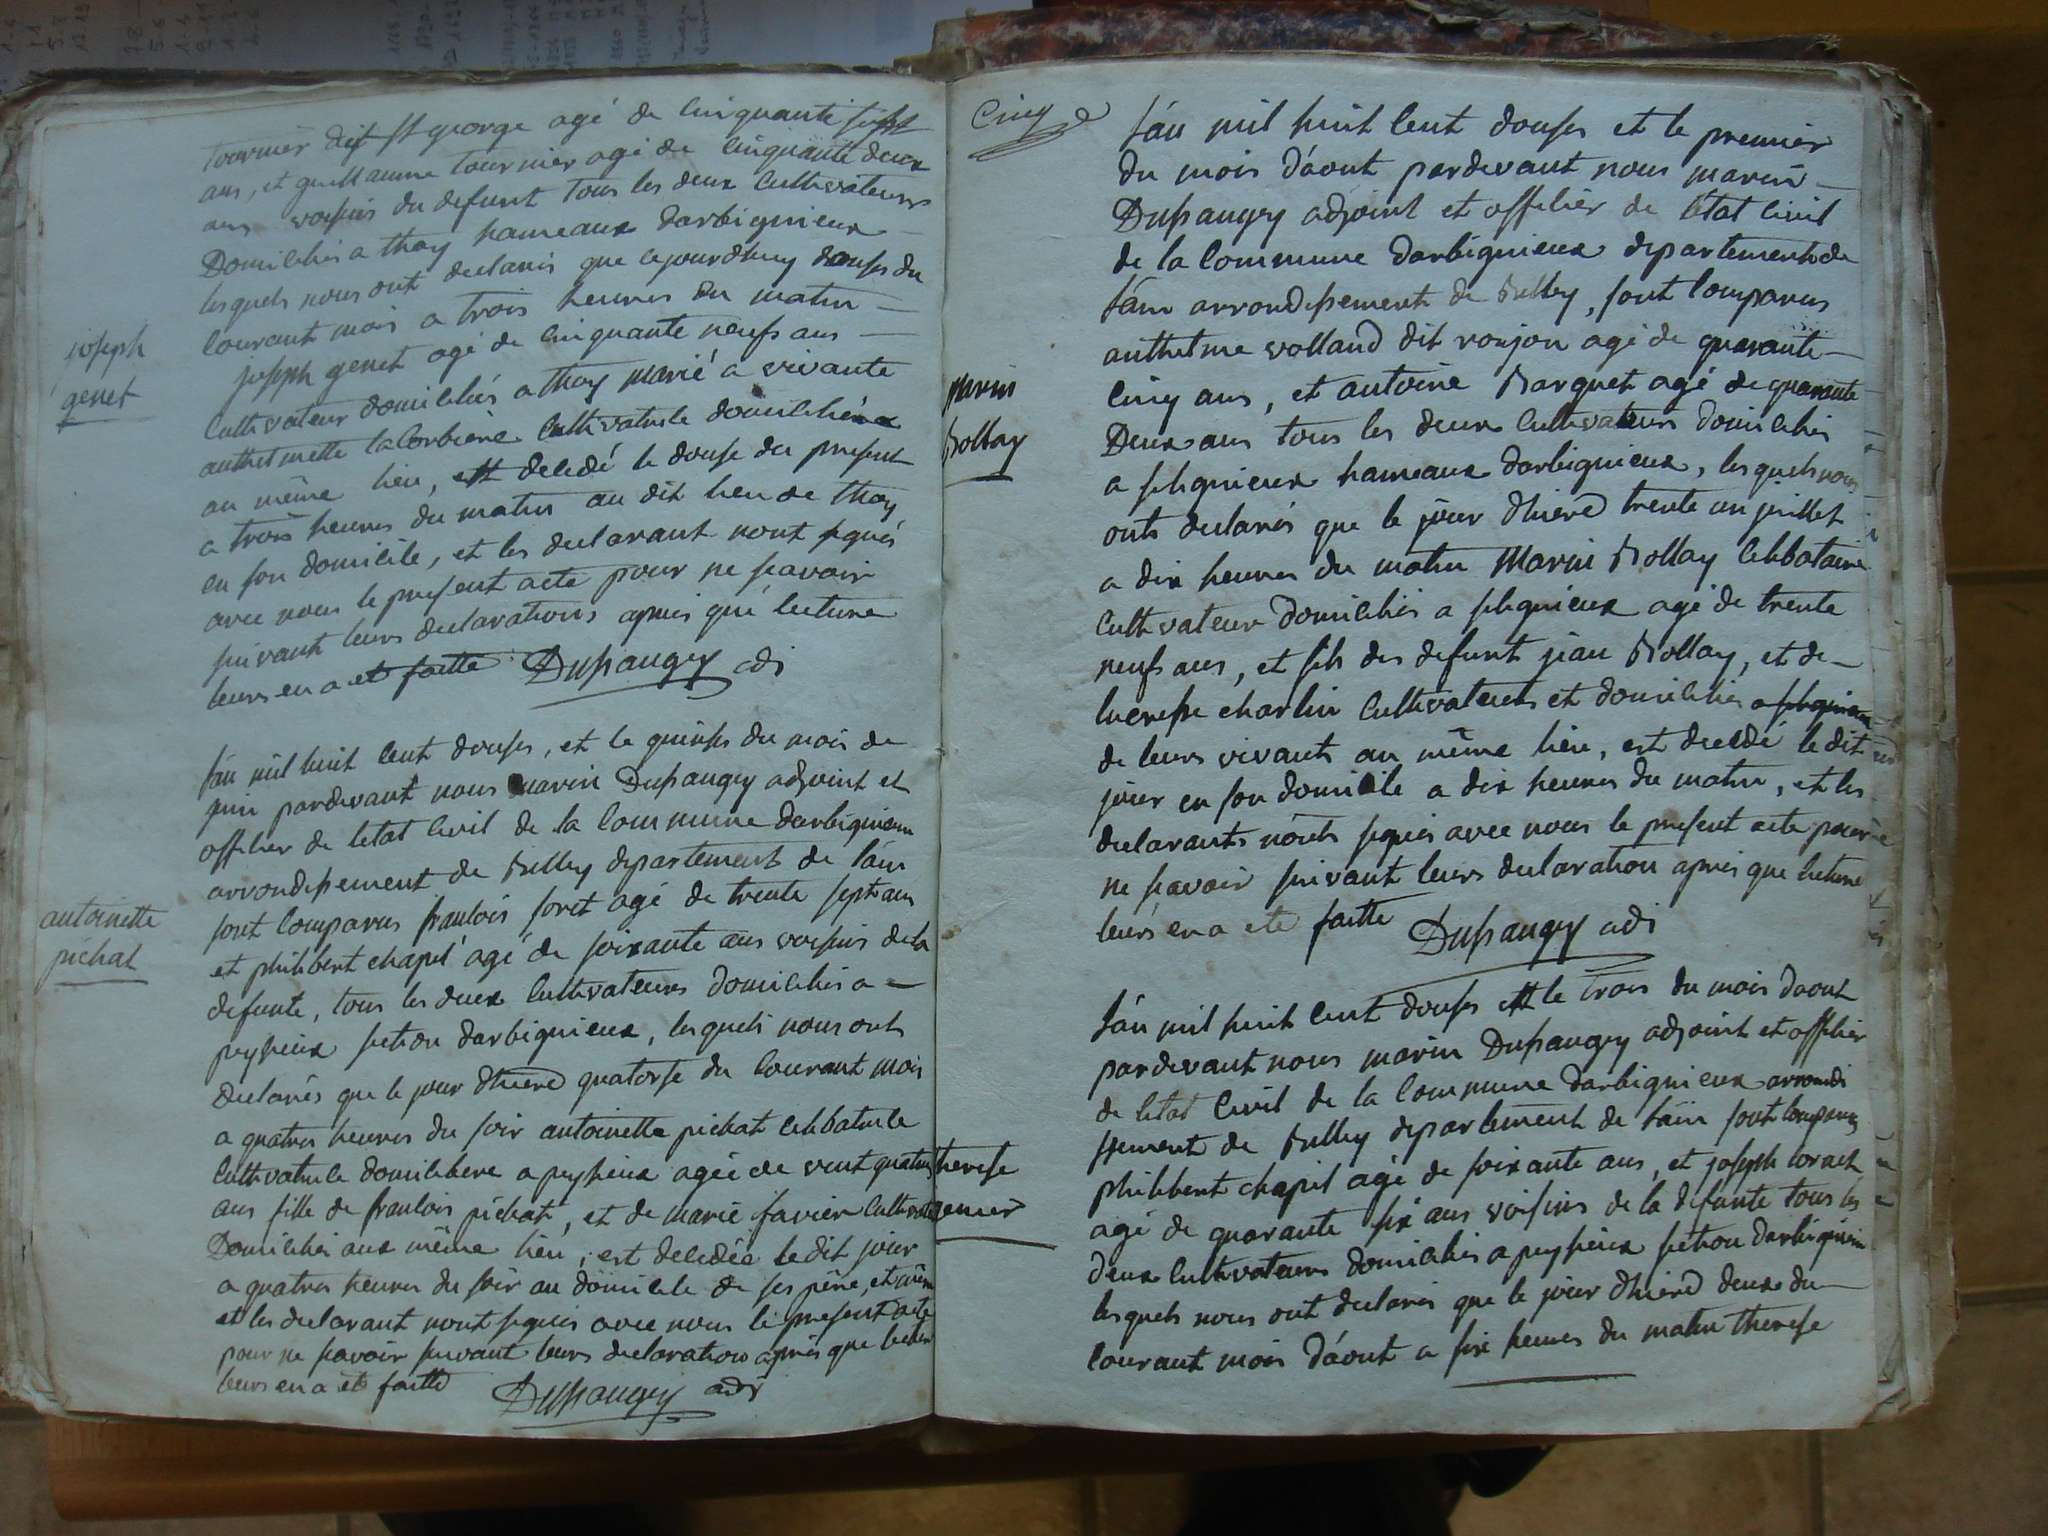 tournier dit st george agé de cinquante sept
ans, et guillaume tournier agé de cinquante deux
ans voisins du defunt tous les deux cultivateurs
Domiciliés a thoy hameaux darbignieux
lesquels nous ont declarés que cejourdhuy douses du
courant mois a trois heures du matin
joseph genet agé de cinquante neufs ans
joseph
genet
Cultivateur domiciliés a thoy marié a vivante
anthelmette lacorbiere cultivatrice domiciliée
au même lieu, est decedé le douse du present
a trois heures du matin au dit lieu de thoy
en son domicile, et les declarant nont signés
avec nous le present acte pour ne scavoir
suivant leurs declarations apres qué lecture
leurs en a eté faitte Dupaugey adj
l'an mil huit cent douses, et le quinses du mois de
juin pardevant nous marin Dupaugey adjoint et
officier de letat civil de la commune darbignieux
arrondissement de Belley departement de l'ain
sont comparus francois foret agé de trente sept ans
antoinette
pichat
et philibert chapel agé de soixante ans voisins de la
defunte, tous les deux cultivateurs domiciliés a
peyzieux section darbignieux, lesquels nous onts
declarés que le jour dhiere quatorse du courant mois
a quatres heures du soir antoinette pichat celibatrice
Cultivatrice domiciliere a peyzieux agée de vent quatres
ans fille de francois pichat, et de marie favier cultivat
Domiciliés aux même lieu, est decedée le dit jour
a quatres heures du soir au domicile de ses père, et mère
et les declarant nont signés avec nous le present acte
pour ne scavoir suivant leurs declaration après que lecture
leurs en a eté faitte Dupaugey adj
Cinq
l'an mil huit cent douses et le premier
du mois d'aout pardevant nous marin
Dupaugey adjoint et officier de letat civil
de la commune darbignieux departement de
l'ain arrondissement de Belley, sont comparus
anthelme volland dit roujon agé de quarante
cinq ans, et antoine Barquet agé de quarante
marin
Bollay
Deux ans tous les deux cultivateurs domiciliés
a slignieux hameaux darbignieux, lesquels nous
onts declarés que le jour dhiere trente un juillet
a dix heures du matin Marin Bollay celibataire
cultivateur domiciliés a slignieux agé de trente
neufs ans, et fils des defunt jean Bollay, et de
lucresse charlin cultivateurs et domiciliés a slignieux
de leurs vivants au même lieu, est decedé le dit
jour en son domicile a dix heures du matin, et les
declarants n'onts signés avec nous le present acte pour
ne scavoir suivant leurs declaration apres que lecture
leurs en a eté faitte Dupaugey adj
l'an mil huit cent douses et le trois du mois d'aout
pardevant nous marin Dupaugey adjoint et officier
de letat civil de la commune darbignieux arrondi
ssement de Belley departement de l'ain sont comparus
therese
philibert chapel agé de soixante ans, et joseph
agé de quarante six ans voisins de la defunte tous les
deux cultivateurs domiciliés a peyzieux section darbignieux
lesquels nous ont declarés que le jour dhiere deux du
courant mois d'aout a six heures du matin therese